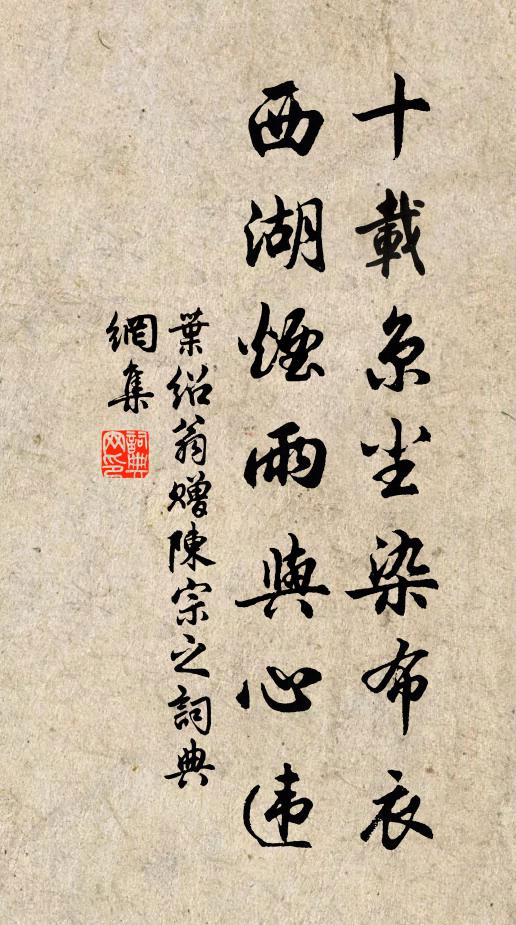 十載京尘染布衣
西湖煙雨與心违
葉紹翁赠陳宗之詞典
網集
詞典網印